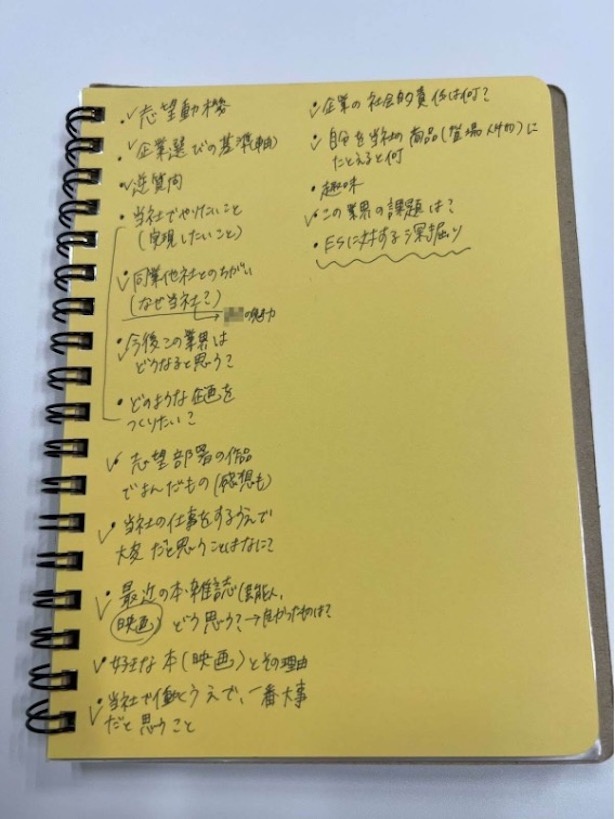 ・志望動機
・企業選びの基準(軸)
・逆質問
・当社でやりたいこと
(実現したいこと)
・同業他社とのちがい
(なぜ当社?)
→ の魅力
・今後この業界は
どうなると思う?
・どのような企画を
つくりたい?
・志望部署の作品
でよんだもの(感想も)
・当社の仕事をするうえで
大変だと思うことはなに?
・最近の本・雑誌(芸能人、
映画)どう思う?→良かったものは?
・好きな本(映画)とその理由
・当社で働くうえで、一番大事
だと思うこと
・企業の社会的責任は何?
・自分を当社の商品(登場人物)に
たとえると何
・趣味
・この業界の課題は?
・ESに対する深掘り